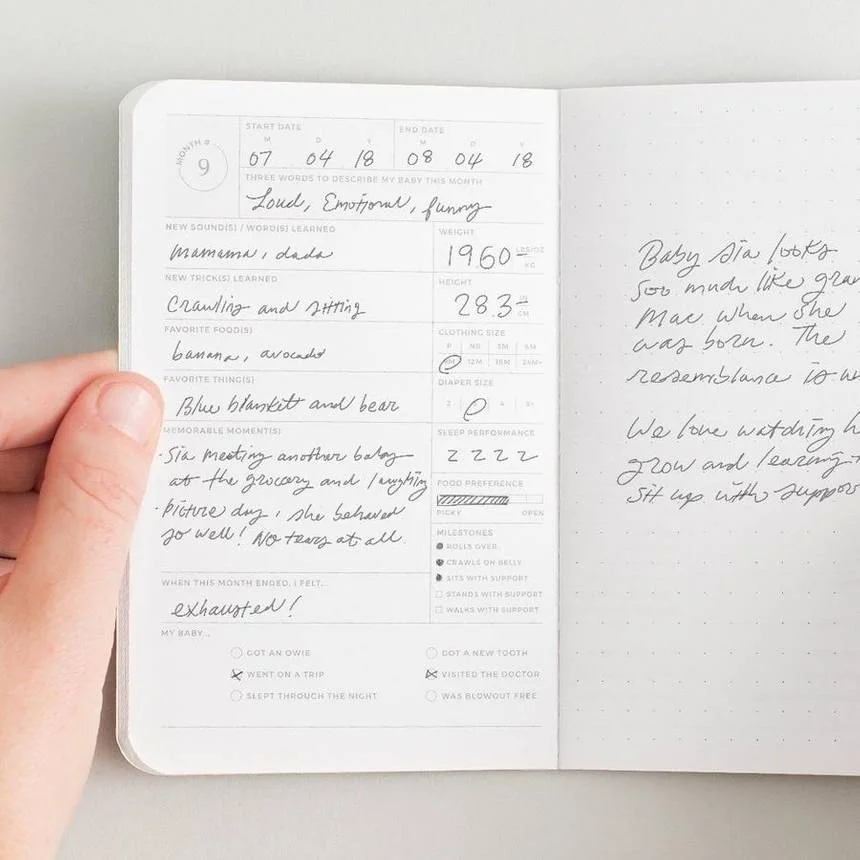 MONTH # 9
START DATE
M D Y
07 04 18
END DATE
M D Y
08 04 18
THREE WORDS TO DESCRIBE MY BABY THIS MONTH
Loud, Emotional, funny
NEW SOUND(S) / WORD(S) LEARNED
mamama, dada
WEIGHT
19.60 LBS/OZ
KG
NEW TRICK(S) LEARNED
Crawling and sitting
HEIGHT
28.3 IN
CM
FAVORITE FOOD(S)
banana, avocado
CLOTHING SIZE
P NB 3M 6M
9M 12M 18M 24M+
FAVORITE THING(S)
Blue blankett and bear
DIAPER SIZE
2 4 5+
MEMORABLE MOMENT(S)
· Sia meeting another baby
at the grocery and laughing
· Picture day, she behaved
so well! No tears at all.
SLEEP PERFORMANCE
Z Z Z Z
FOOD PREFERENCE
PICKY OPEN
MILESTONES
ROLLS OVER
CRAWLS ON BELLY
SITS WITH SUPPORT
STANDS WITH SUPPORT
WALKS WITH SUPPORT
WHEN THIS MONTH ENDED, I FELT...
exhausted!
MY BABY...
GOT AN OWIE
GOT A NEW TOOTH
WENT ON A TRIP
VISITED THE DOCTOR
SLEPT THROUGH THE NIGHT
WAS BLOWOUT FREE
Baby Sia looks
soo much like gran
Mac when she
was born. The
resemblance is
We love watching h
grow and learning
sit up with suppor